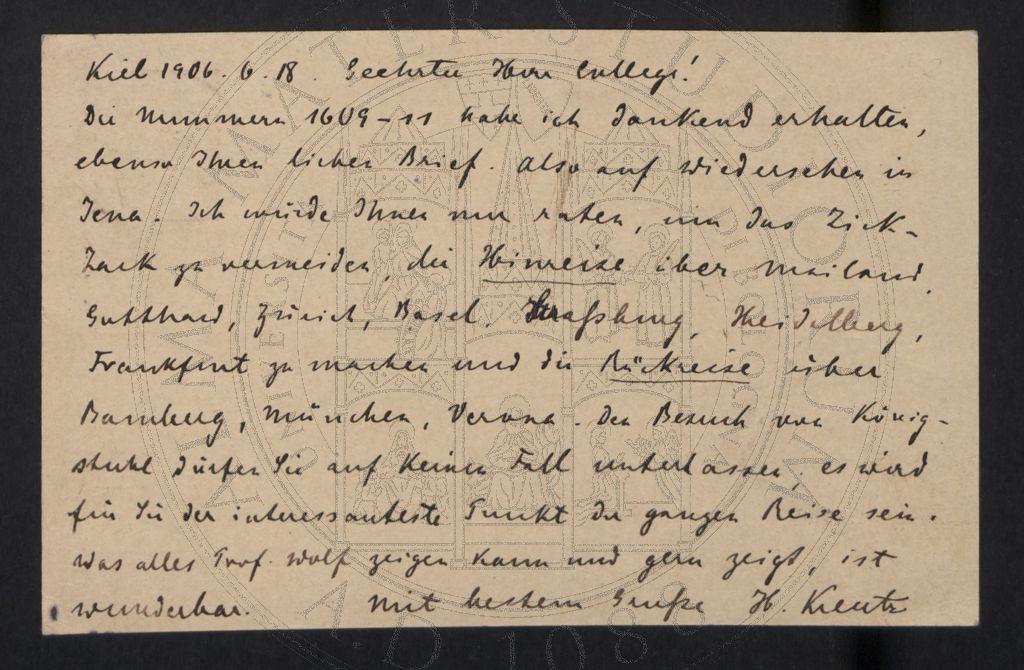 Kiel 1906. 6. 18. Geehrter Herr College!
Die Nummern 1609-11 habe ich dankend erhalten,
ebenso Ihren lieben Brief. Also auf Wiedersehen in
Jena. Ich würde Ihnen nur raten, um das Zick-
Zack zu vermeiden, die Hinreise über Mailand,
Gotthard, Zürich, Basel, Straßburg, Heidelberg,
Frankfurt zu machen und die Rückreise über
Bamberg, München, Verona. Den Besuch von König-
stuhl dürfen Sie auf keinen Fall unterlassen, es wird
für Sie der interessanteste Punkt der ganzen Reise sein.
Was alles Prof. Wolf zeigen kann und gern zeigt, ist
wunderbar. Mit bestem Gruße H. Kreutz
ALMA MATER STUDIORUM
A.D. 1088